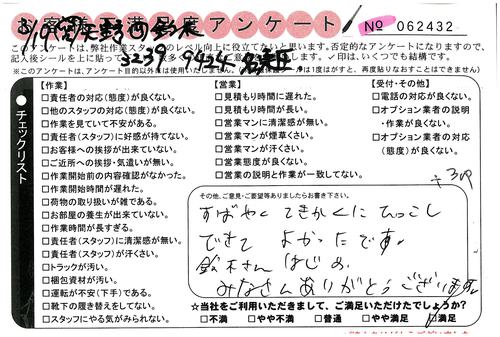 お客様満足度アンケート
No 062432
このアンケートは、弊社作業スタッフのレベル向上に役立てたいと思います。否定的なアンケートになりますので、
記入後シールを上に貼って ✓印は、いくつでも結構です。
3239 9434
※このアンケートは、アンケート目的以外は使用いたしません。 は1度はがすと、再度貼りなおすことはできません)
●チェックリスト
【作業】
□責任者の対応(態度)が良くない。
□他のスタッフの対応(態度)が良くない。
□作業を見ていて不安がある。
□責任者(スタッフ)に好感が持てない。
□お客様への挨拶が出来ていない。
□ご近所への挨拶・気遣いが無い。
□作業開始前の内容確認がなかった。
□作業開始時間が遅れた。
□荷物の取り扱いが雑である。
□お部屋の養生が出来ていない。
□作業時間が長すぎる。
□責任者(スタッフ)に清潔感が無い。
□責任者(スタッフ)が汗くさい。
□トラックが汚い。
□梱包資材が汚い。
□運転が不安(下手)である。
□靴下の履き替えをしてない。
□スタッフにやる気がみられない。
【営業】
□見積もり時間に遅れた。
□見積もり時間が長い。
□営業マンに清潔感が無い。
□営業マンが煙草くさい。
□営業マンが汗くさい。
□営業態度が良くない。
□営業の説明と作業が一致してない。
【受付・その他】
□電話の対応が良くない。
□オプション業者の説明
・作業が良くない。
□オプション業者の対応
(態度)が良くない。
その他、ご意見・ご要望等ありましたらお書き下さい。
すばやく てきかくに ひっこし
できて よかったです。
鈴木さん はじめ
みなさんありがとうございます
☆当社をご利用いただきまして、ご満足いただけたでしょうか?
□不満 □やや不満 □普通 □やや満足 ☑満足